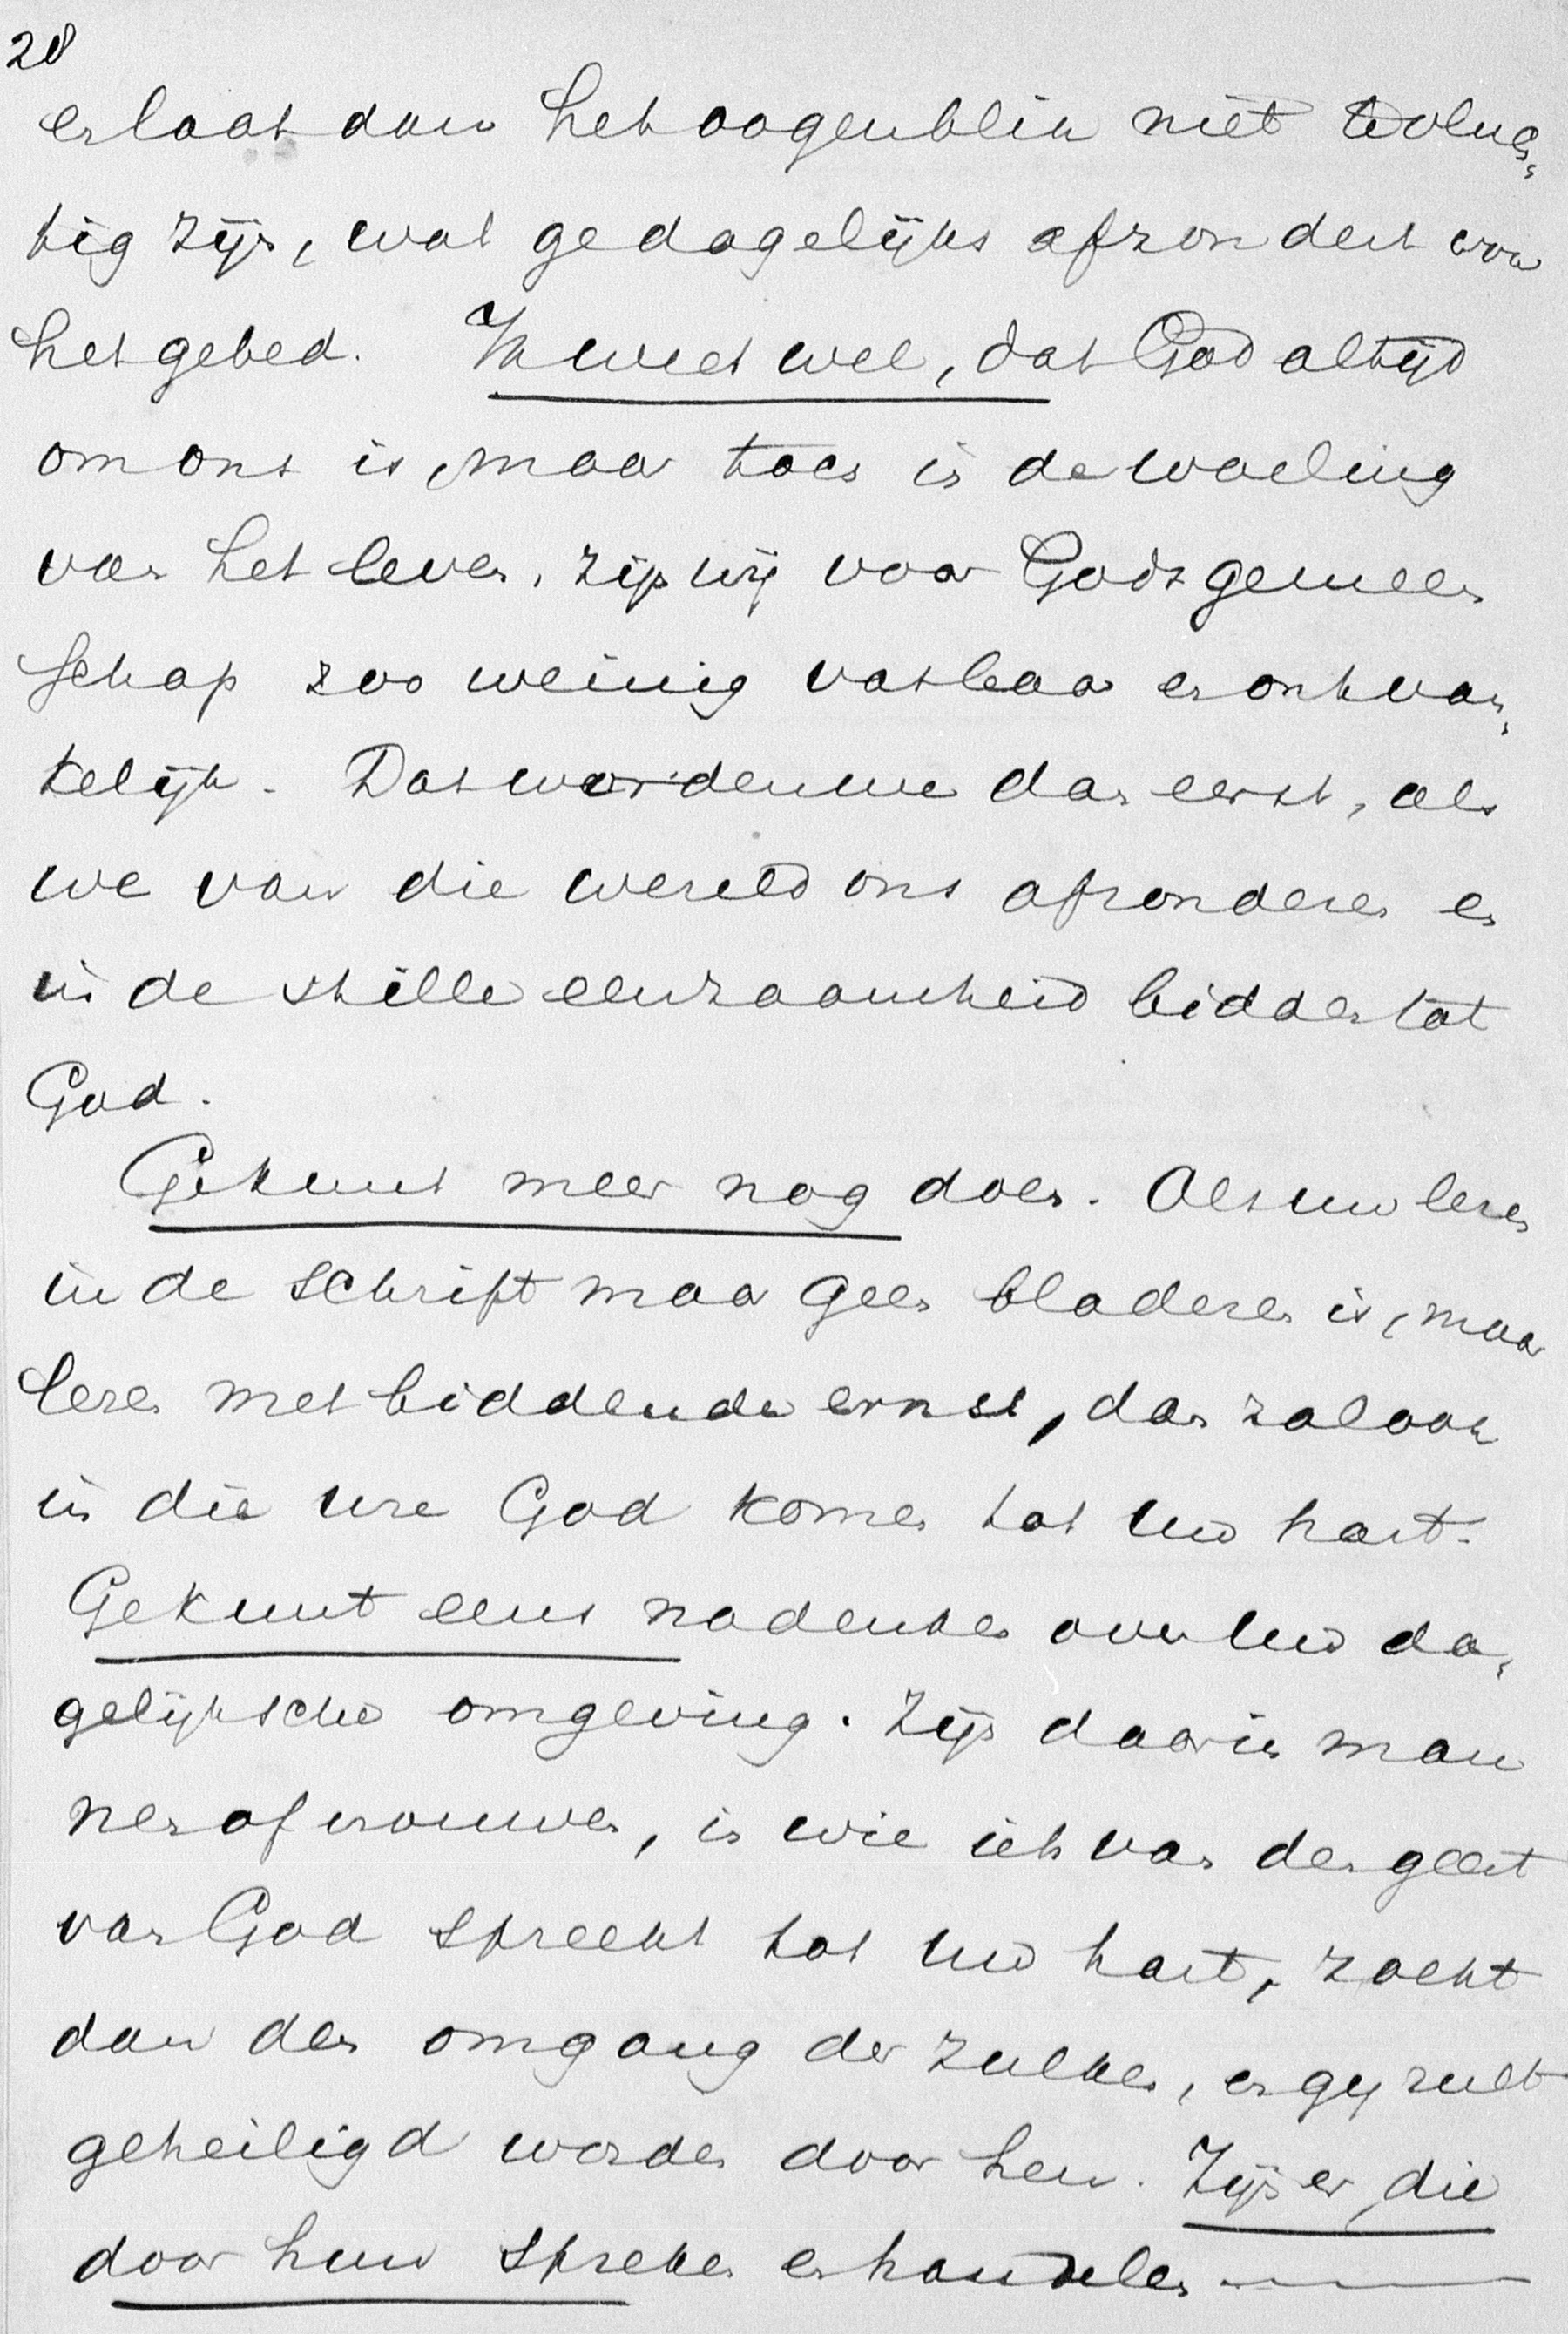 28
en laat dan het oogenblik niet te vluch-
tig zijn, wat ge dagelijks afzondert voor
het gebed. Ik weet wel, dat God altijd
om ons is, maar toch in de woeling
van het leven, zijn wij voor Gods gemeen
schap zoo weinig vatbaar en ontvan-
kelijk. Dat worden we dan eerst, als
we van die wereld ons afzonderen en
in de stille eenzaamheid bidden tot
God.
Ge kunt meer nog doen. Als uw lezen
in de schrift maar geen bladeren is, maar
lezen met biddende ernst, dan zal ook
in die ure God komen tot uw hart.
Ge kunt eens nadenken over uw da-
gelijksche omgeving. Zijn daarin man
nen of vrouwen, in wie iets van den geest
van God spreekt tot uw hart, zoekt
dan den omgang der zulken, en gij zult
geheiligd worden door hen. Zijn er, die
door hun spreken en handelen